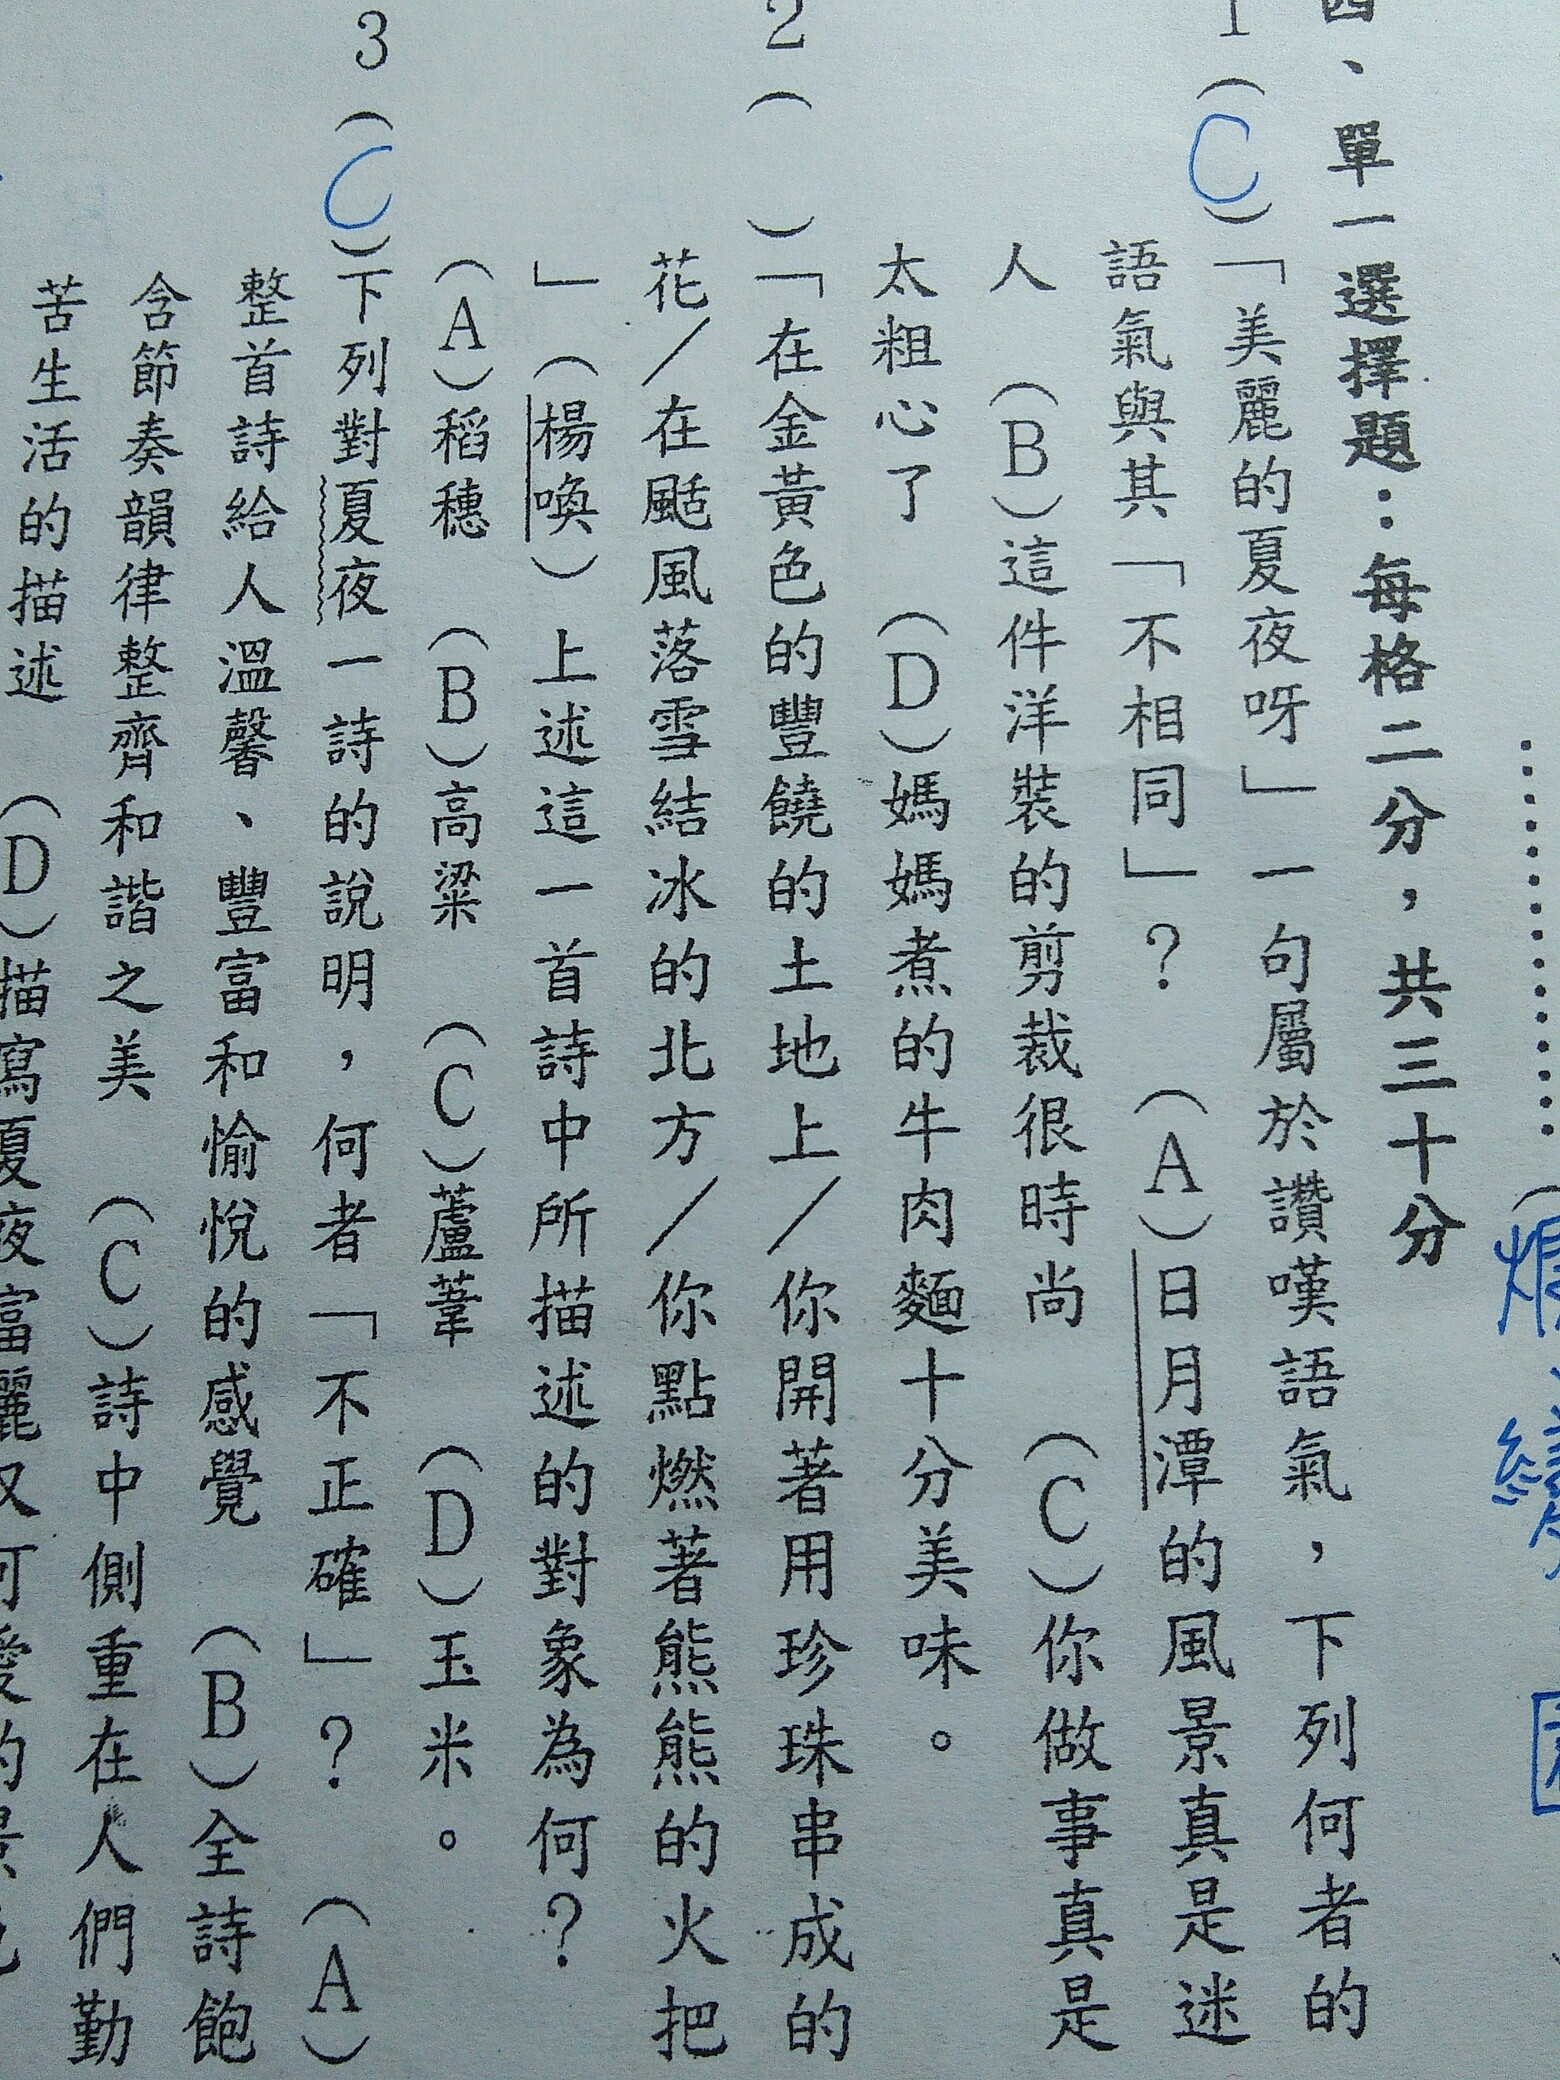 四、單一選擇題：每格二分，共三十分
1（C）「美麗的夏夜呀」一句屬於讚嘆語氣，下列何者的
語氣與其「不相同」？　（A）日月潭的風景真是迷
人　（B）這件洋裝的剪裁很時尚　（C）你做事真是
太粗心了　（D）媽媽煮的牛肉麵十分美味。
2（　）「在金黃色的豐饒的土地上／你開著用珍珠串成的
花／在颳風落雪結冰的北方／你點燃著熊熊的火把
」（楊喚）上述這一首詩中所描述的對象為何？
（A）稻穗　（B）高粱　（C）蘆葦　（D）玉米。
3（C）下列對夏夜一詩的說明，何者「不正確」？　（A）
整首詩給人溫馨、豐富和愉悅的感覺　（B）全詩飽
含節奏韻律整齊和諧之美　（C）詩中側重在人們勤
苦生活的描述　（D）描寫夏夜富麗又可愛的景色